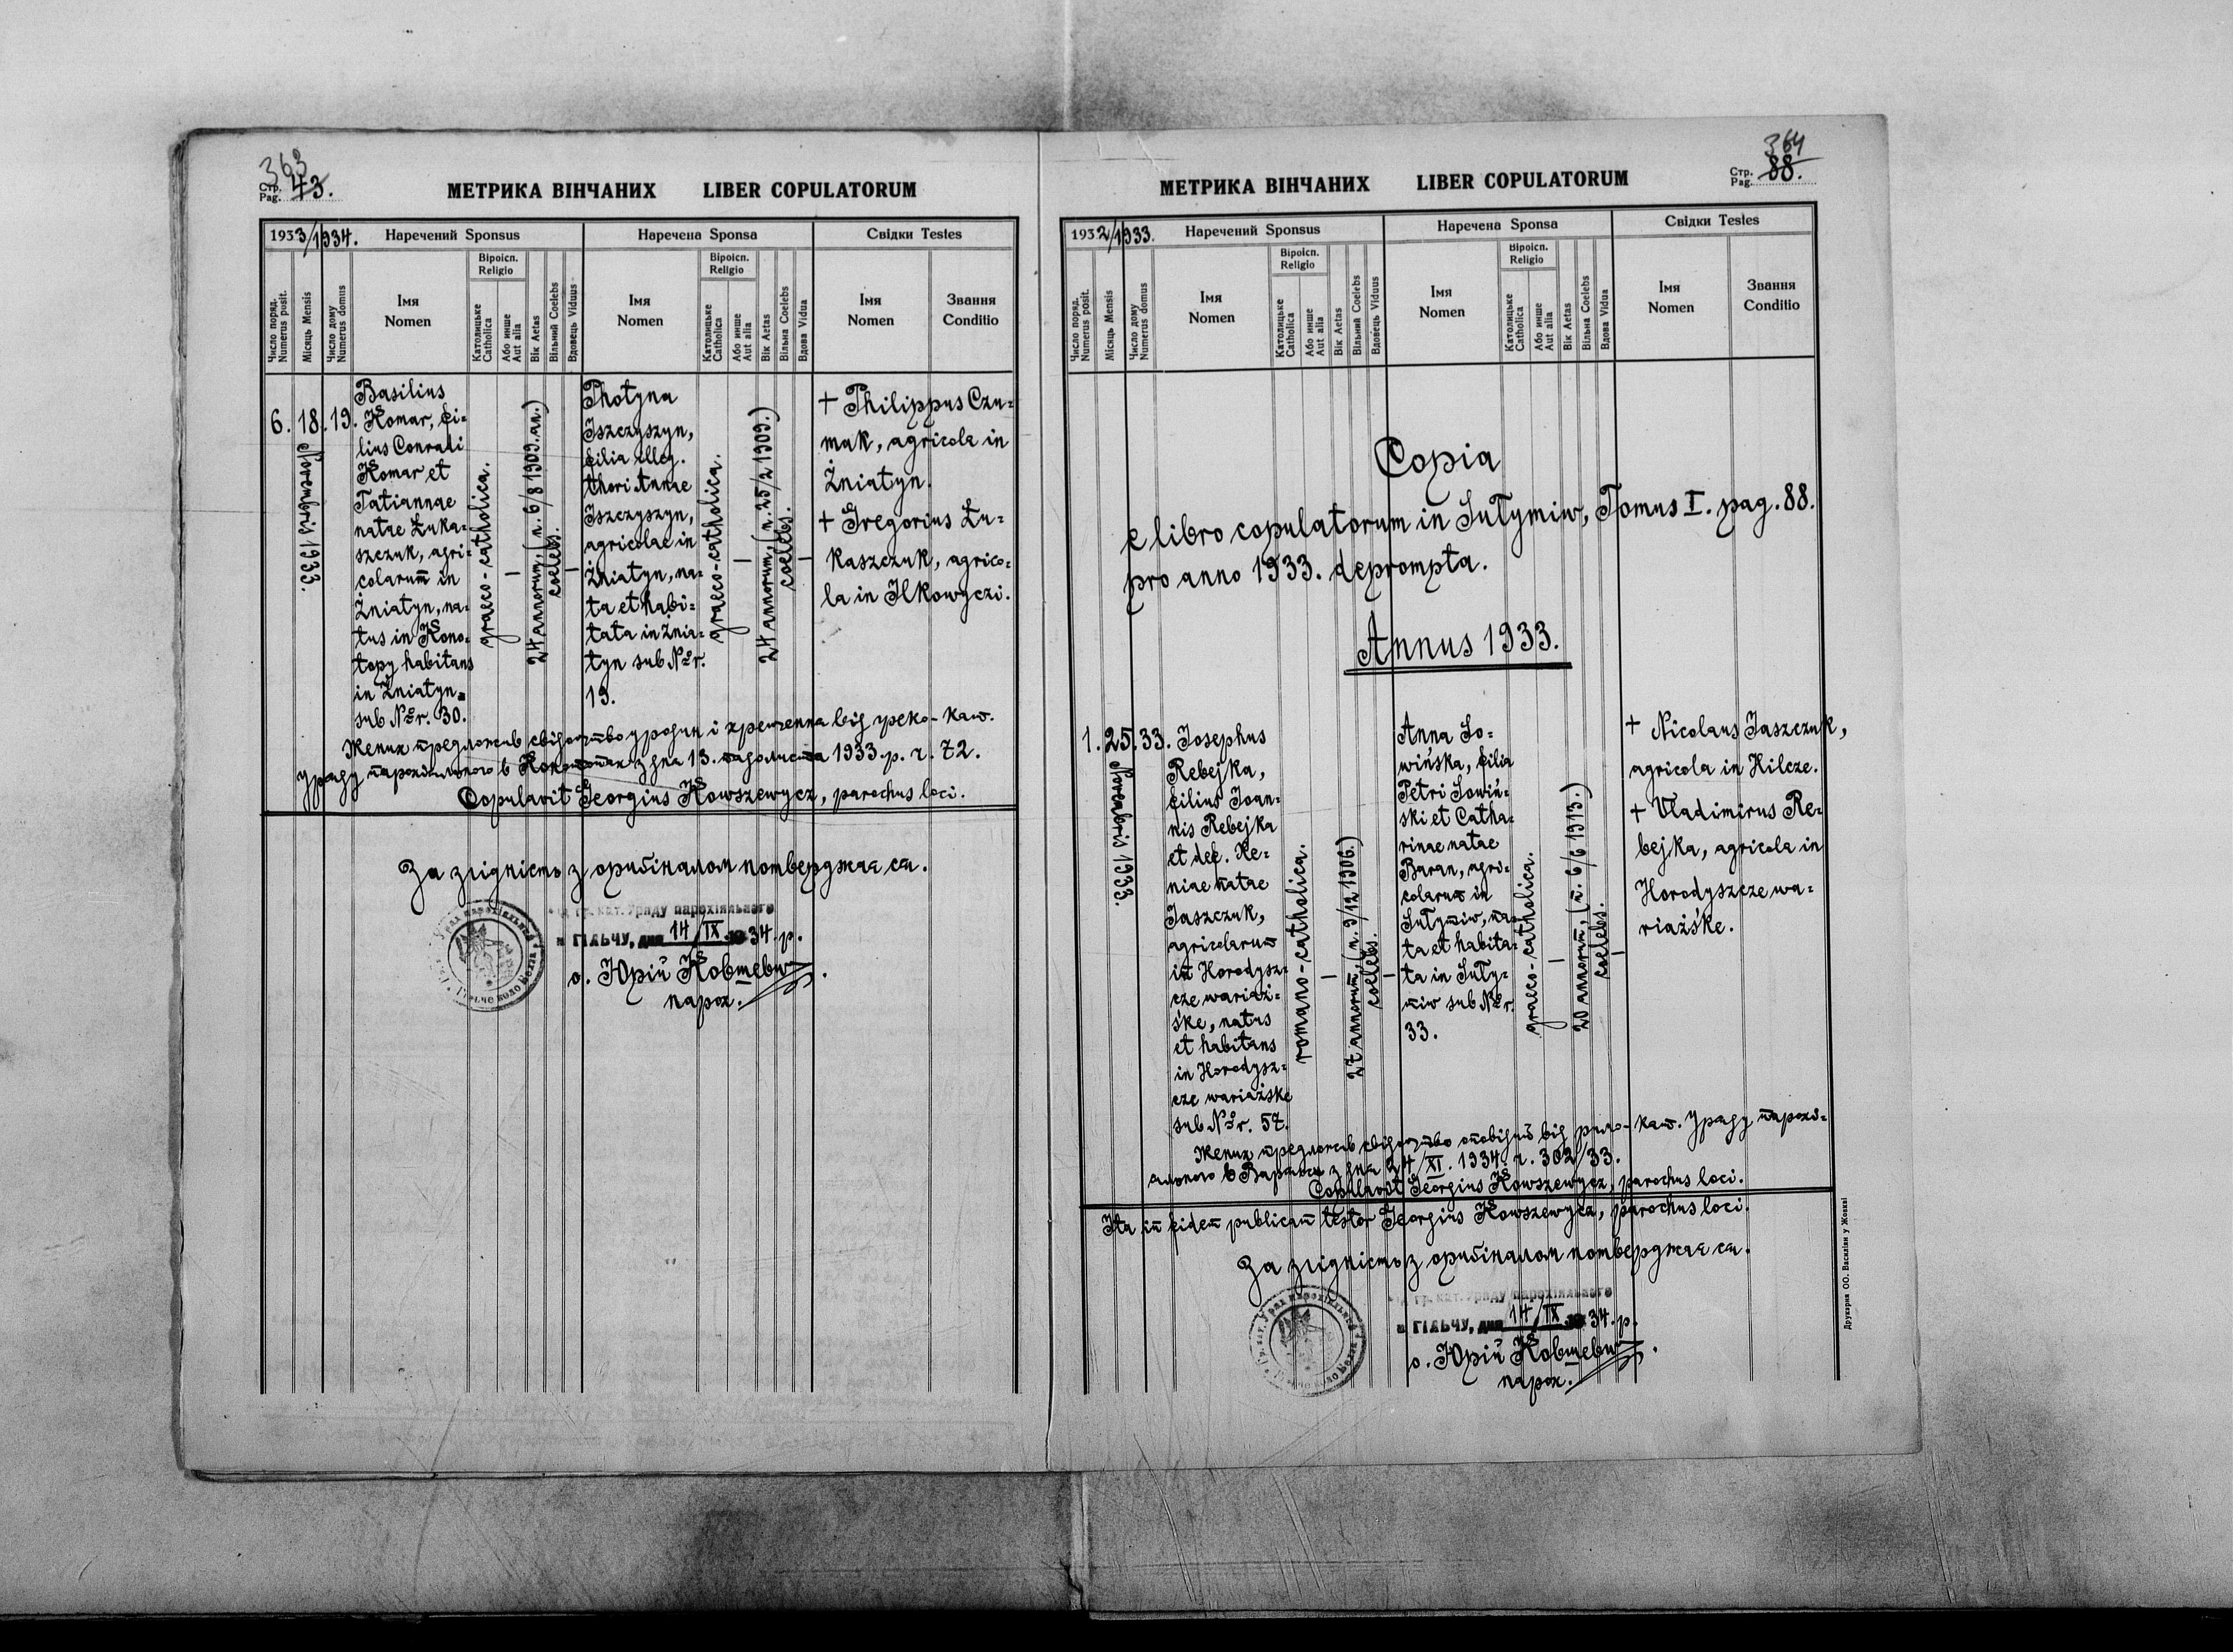 363
Стр. Pag. 43.
МЕТРИКА ВІНЧАНИХ LIBER COPULATORUM
1933/1934. Наречений Sponsus
Наречена Sponsa
Свідки Testes
Число поряд. Numerus posit.
Місяць Mensis
Число дому Numerus domus
Імя Nomen
Віроісп. Religio
Католицьке Catholica
Або инше Aut alia
Вік Aetas
Вільний Coelebs
Вдовець Viduus
Імя Nomen
Віроісп. Religio
Католицьке Catholica
Або инше Aut alia
Вік Aetas
Вільна Coelebs
Вдова Vidua
Імя Nomen
Звання Conditio
6. 18. 19.
Novembris 1933.
Basilius
Komar, fi=
lius Conradi
Komar et
Tatiannae
natae Łuka=
szczuk, agri=
colarum in
Żniatyn, na=
tus in Kono=
topy habitans
in Żniatyn
sub Nr. 30.
graeco-catholica.
—
24 annorum, (n. 6/8 1909. an.)
coelebs.
—
Photyna
Iszczyszyn,
filia illeg.
thori Annae
Iszczyszyn,
agricolae in
Żniatyn, na=
ta et habi=
tata in Żnia=
tyn sub Nr.
19.
graeco-catholica.
—
24 annorum, (n. 25/2 1909.)
coelebs.
—
+ Philippus Czu=
mak, agricola in
Żniatyn.
+ Gregorius Łu=
kaszczuk, agrico=
la in Ilkowyczi.
Жених предложив свідоцтво уродин і хрещення від греко-кат.
Уряду парохіяльного в Конотопах з дня 13. падолиста 1933. р. ч. 72.
Copulavit Georgius Kowszewycz, parochus loci.
За згідність з оригіналом потверджає ся.
гр. кат. Уряду парохіяльного
в ГІЛЬЧУ, дня 14/IX 1934. р.
о. Юрій Ковшевич
парох.
364
Стр. Pag. 88.
МЕТРИКА ВІНЧАНИХ LIBER COPULATORUM
1932/1933. Наречений Sponsus
Наречена Sponsa
Свідки Testes
Число поряд. Numerus posit.
Місяць Mensis
Число дому Numerus domus
Імя Nomen
Віроісп. Religio
Католицьке Catholica
Або инше Aut alia
Вік Aetas
Вільний Coelebs
Вдовець Viduus
Імя Nomen
Віроісп. Religio
Католицьке Catholica
Або инше Aut alia
Вік Aetas
Вільна Coelebs
Вдова Vidua
Імя Nomen
Звання Conditio
Copia
e libro copulatorum in Sutymiw, Tomus I. pag. 88.
pro anno 1933. deprompta.
Annus 1933.
1. 25. 33.
Novembris 1933.
Josephus
Rebejka,
filius Joan=
nis Rebejka
et def. Xe=
niae natae
Jaszczuk,
agricolarum
in Horodysz=
cze wariaż=
śke, natus
et habitans
in Horodysz=
cze wariaźśke
sub Nr. 57.
romano-catholica.
—
27 annorum, (n. 9/12 1906.)
coelebs.
—
Anna So=
wińska, filia
Petri Sowiń=
ski et Catha=
rinae natae
Baran, agri=
colarum in
Sutymiw, na=
ta et habita=
ta in Suty=
miw sub Nr.
33.
graeco-catholica.
—
20 annorum, (n. 6/6 1913.)
coelebs.
—
+ Nicolaus Jaszczuk,
agricola in Hilcze.
+ Vladimirus Re=
bejka, agricola in
Horodyszcze wa=
riaźśke.
Жених предложив свідоцтво оповідий від римо-кат. Уряду парохі=
яльного в Варяжи з дня 24/XI. 1934. ч. 302/33.
Copulavit Georgius Kowszewycz, parochus loci.
Ita in fidem publicam testor Georgius Kowszewycz, parochus loci.
За згідність з оригіналом потверджає ся.
гр. кат. Уряду парохіяльного
в ГІЛЬЧУ, дня 14/IX 1934. р.
о. Юрій Ковшевич
парох.
Друкарня ОО. Василіян у Жовкві